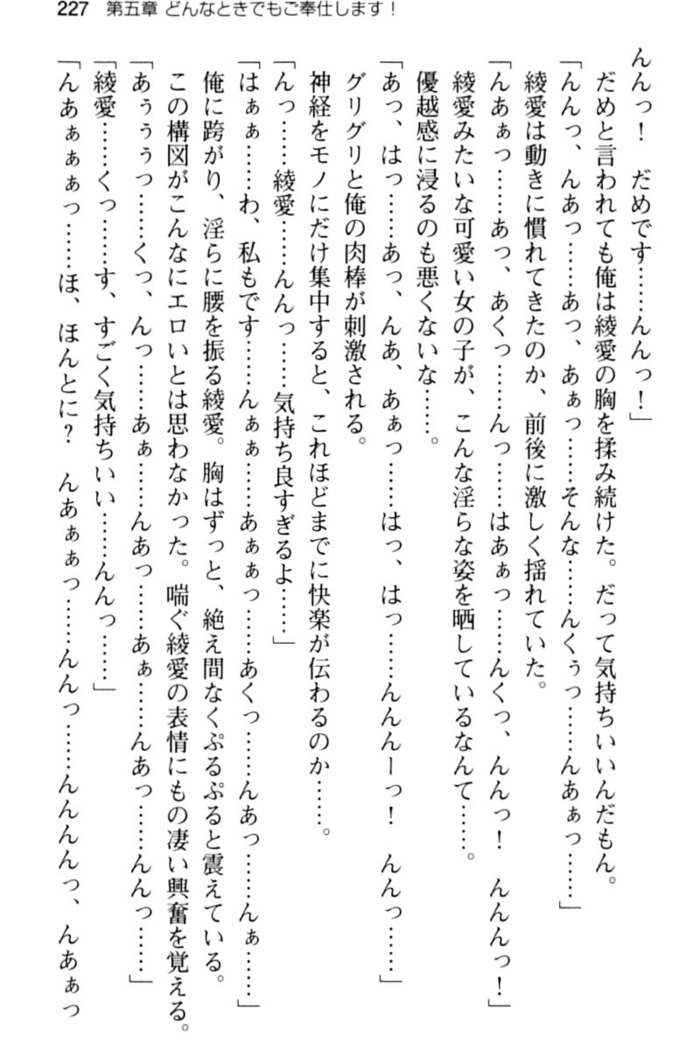 227 第五章 どんなときでもご奉仕します！
んんっ！　だめです……んんっ！」
だめと言われても俺は綾愛の胸を揉み続けた。だって気持ちいいんだもん。
「んんっ、んあっ……あっ、あぁっ……そんな……んくぅっ……んあぁっ……」
綾愛は動きに慣れてきたのか、前後に激しく揺れていた。
「んあぁっ……あっ、あくっ……んっ……はあぁっ……んくっ、んんっ！　んんんっ！」
綾愛みたいな可愛い女の子が、こんな淫らな姿を晒しているなんて……。
優越感に浸るのも悪くないな……。
「あっ、はっ……あっ、んあ、あぁっ……はっ、はっ……んんんーっ！　んんっ……」
グリグリと俺の肉棒が刺激される。
神経をモノにだけ集中すると、これほどまでに快楽が伝わるのか……。
「んっ……綾愛……んんっ……気持ち良すぎるよ……」
「はぁぁ……わ、私もです……んぁぁ……あぁぁっ……あくっ……んあっ……んぁ……」
俺に跨がり、淫らに腰を振る綾愛。胸はずっと、絶え間なくぷるぷると震えている。
この構図がこんなにエロいとは思わなかった。喘ぐ綾愛の表情にもの凄い興奮を覚える。
「あぅぅぅっ……くっ、んっ……あぁ……んあっ……あぁ……んあっ……んんっ……」
「綾愛……くっ……す、すごく気持ちいい……んんっ……」
「んあぁぁぁっ……ほ、ほんとに？　んあぁぁっ……んんっ……んんんんっ、んあぁっ